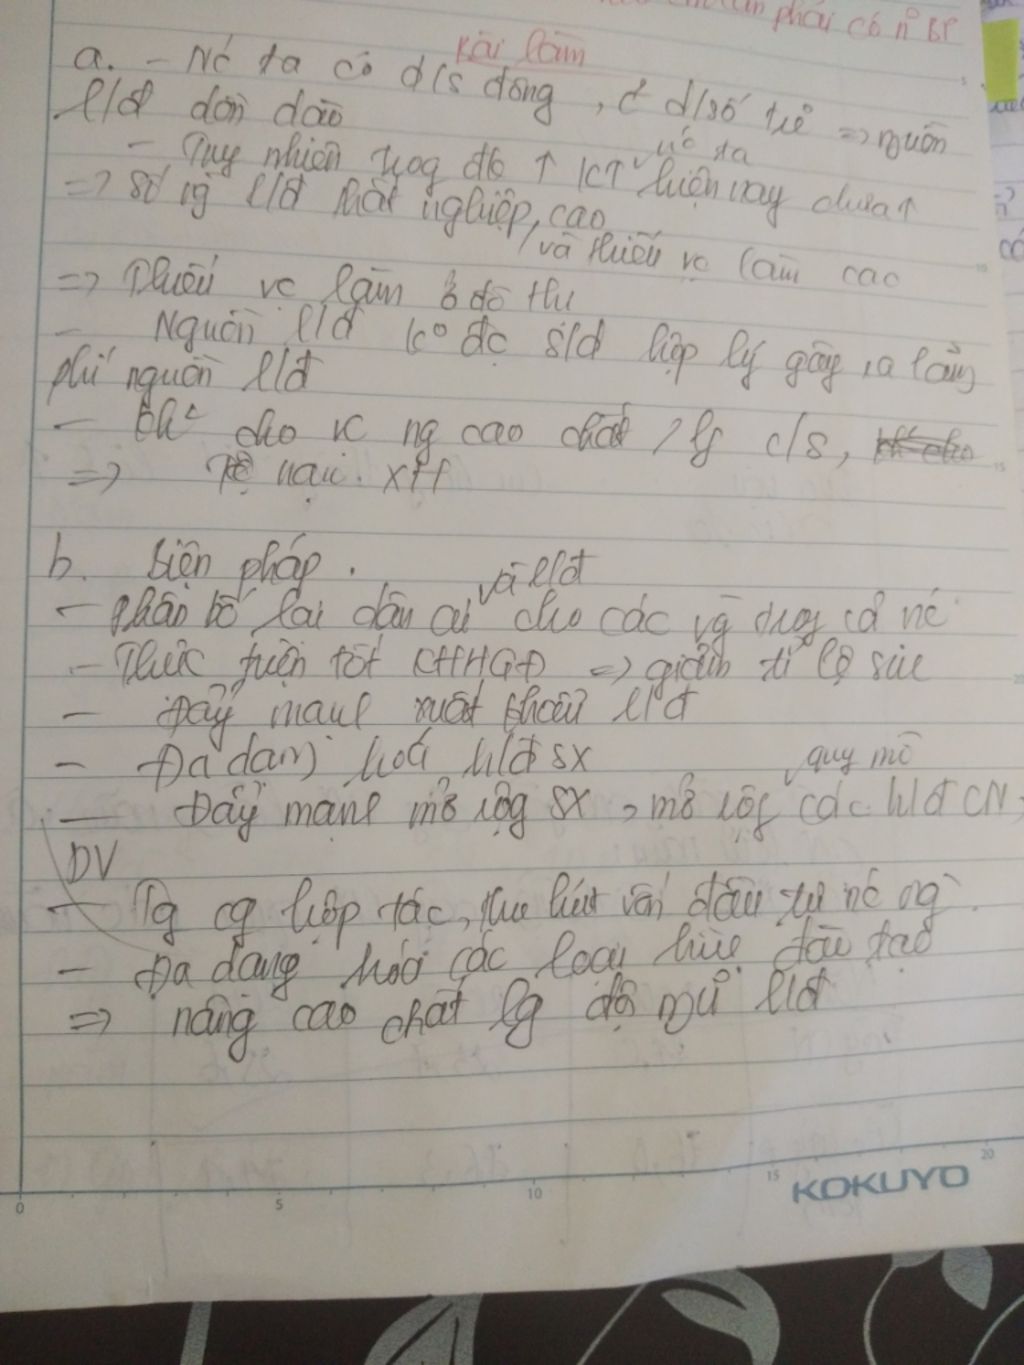 phải có n BP
Bài làm
a. - Nc ta có d/s đông, c d/số trẻ => nguồn
l/đ dồn dào
- Tuy nhiên trog đk ↑ KT nc ta hiện nay chưa ↑
=> Số ng l/đ thất nghiệp cao, và thiếu vc làm cao
=> Thiếu vc làm ở đô thị
- Nguồn l/đ ko đc s/d hợp lý gây ra lãng
phí nguồn l/đ
- Kh² cho vc ng cao chất lg c/s,
=> Tệ nạn. XH
b. Biện pháp.
- Phân bố lại dân cư và l/đ cho các vg trog cả nc
- Thực hiện tốt KHHGĐ => giảm tỉ lệ sih
- Đẩy mạnh xuất khẩu l/đ
- Đa dạng hoá h/đ sx
- Đẩy mạnh mở rộg SX, mở rộg quy mô các h/đ CN,
DV
- Tg cg hợp tác, thu hút vốn đầu tư nc ng
- Đa dạng hoá các loại hình đào tạo
=> nâng cao chất lg đội ngũ l/đ
0 5 10 15 20
KOKUYO